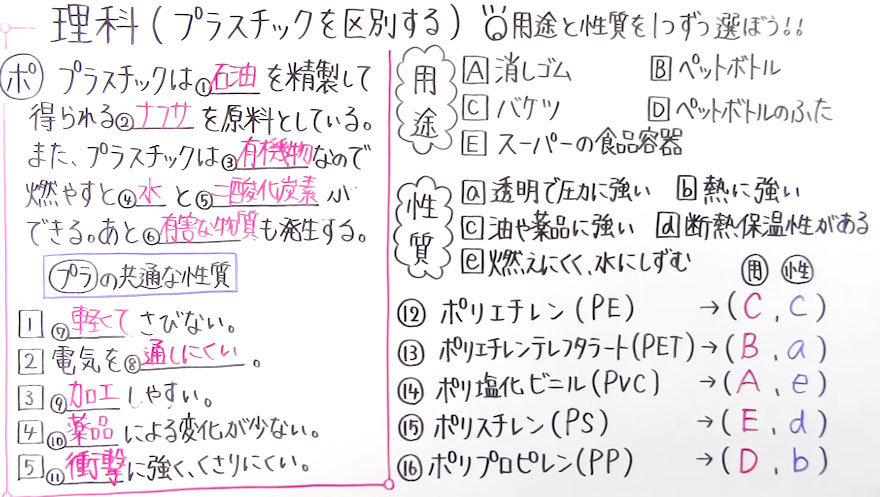 理科(プラスチックを区別する)
ポ プラスチックは①石油を精製して
得られる②ナフサを原料としている。
また、プラスチックは③有機物なので
燃やすと④水と⑤二酸化炭素が
できる。あと⑥有害な物質も発生する。
プラの共通な性質
1 ⑦軽くてさびない。
2 電気を⑧通しにくい。
3 ⑨加工しやすい。
4 ⑩薬品による変化が少ない。
5 ⑪衝撃に強く、くさりにくい。
用途と性質を1つずつ選ぼう!!
用途
A 消しゴム B ペットボトル
C バケツ D ペットボトルのふた
E スーパーの食品容器
性質
a 透明で圧力に強い b 熱に強い
c 油や薬品に強い d 断熱保温性がある
e 燃えにくく、水にしずむ
用 性
⑫ ポリエチレン(PE) →(C, c)
⑬ ポリエチレンテレフタラート(PET)→(B, a)
⑭ ポリ塩化ビニル(PVC) →(A, e)
⑮ ポリスチレン(PS) →(E, d)
⑯ ポリプロピレン(PP) →(D, b)